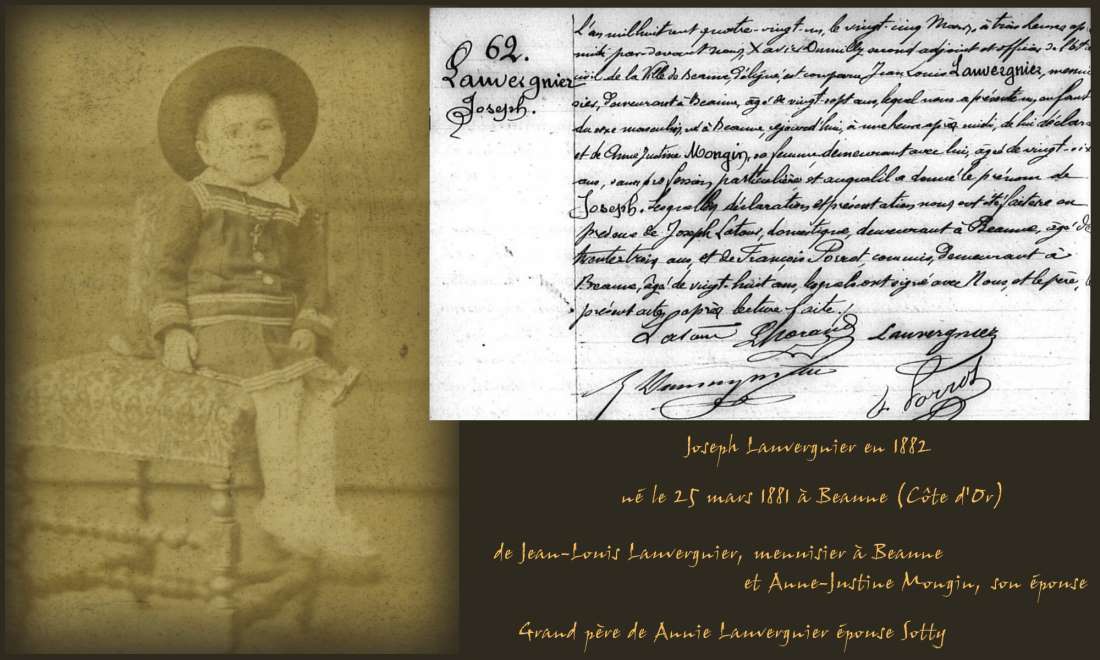 62.
Lauvergnier
Joseph.
L'an mil huit cent quatre-vingt-un, le vingt-cinq Mars, à trois heures ap
midi par-devant nous, Xavier second adjoint et officier de l'ét
civil de la Ville de Beaune délégué, est comparu Jean Louis Lauvergnier, menui
sier, demeurant à Beaune, âgé de vingt-sept ans, lequel nous a présenté un enfant
du sexe masculin, né à Beaune, cejourd'hui, à une heure après midi, de lui déclara
et de Anne Justine Mongin, sa femme demeurant avec lui, âgée de vingt-six
ans, sans profession particulière et auquel il a donné le prénom de
Joseph. Lesquelles déclaration et présentation nous ont été faites en
présence de Joseph Latour, domestique, demeurant à Beaune, âgé de
trente trois ans, et de François Porrot commis, demeurant à
Beaune, âgé de vingt-huit ans, lesquels ont signé avec Nous, et le père, l
présent acte, après lecture faite.
Latour Lauvergnier
Porrot
Joseph Lauvergnier en 1882
né le 25 mars 1881 à Beaune (Côte d'Or)
de Jean-Louis Lauvergnier, menuisier à Beaune
et Anne-Justine Mongin, son épouse
Grand père de Annie Lauvergnier épouse Sotty